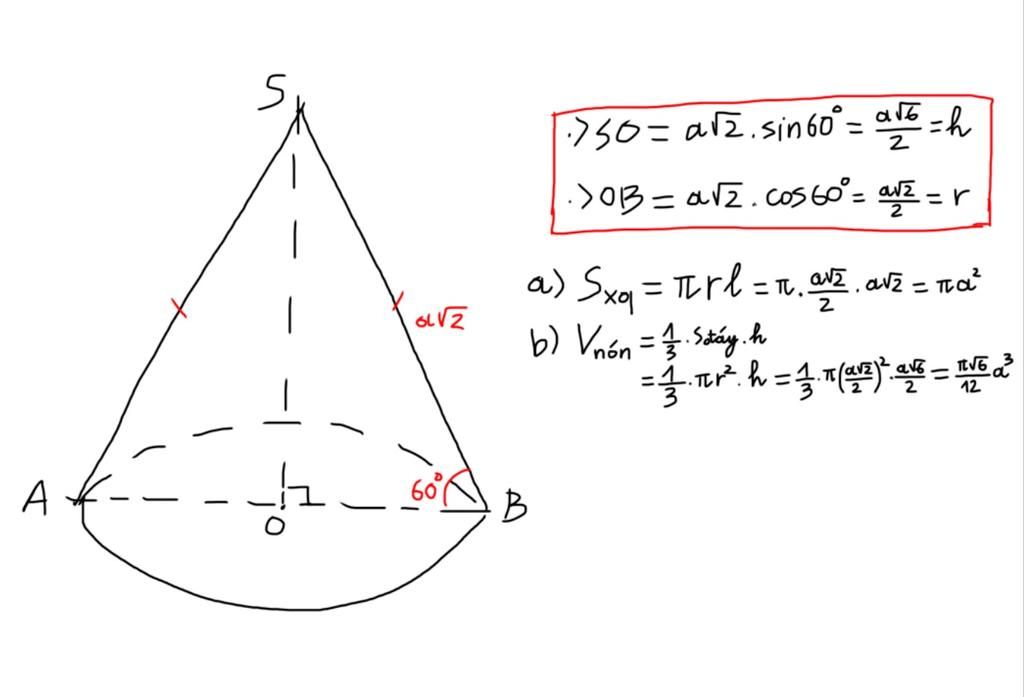 S
.> SO = a√2 . sin60° = a√6/2 = h
.> OB = a√2 . cos60° = a√2/2 = r
a) Sxq = πrl = π. a√2/2 . a√2 = πa²
a√2
b) Vnón = 1/3 . Sđáy . h
= 1/3 . πr² . h = 1/3 . π(a√2/2)² . a√6/2 = π√6/12 a³
A
60°
B
O